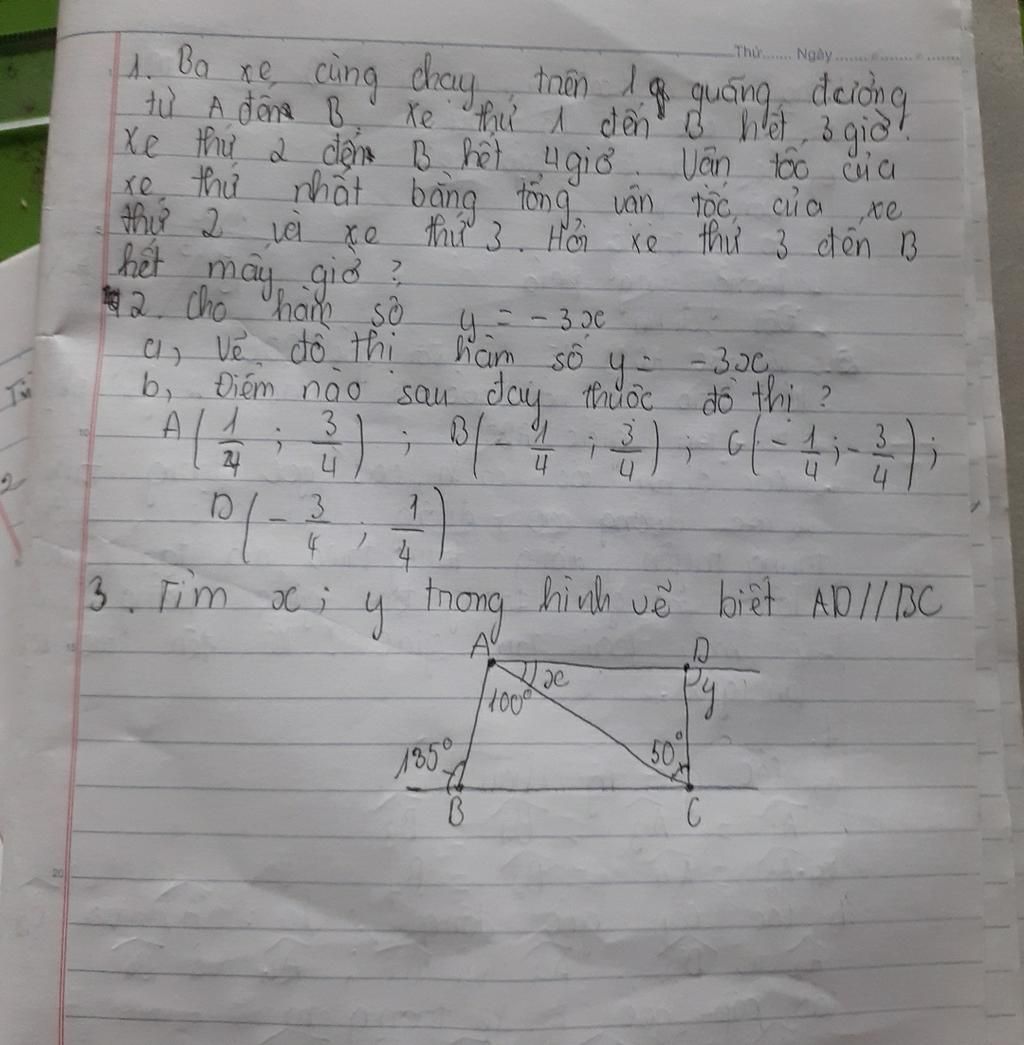 Thứ....... Ngày....................
1. Ba xe cùng chạy trên 1 quãng đường
từ A đến B. xe thứ 1 đến B hết 3 giờ.
xe thứ 2 đến B hết 4 giờ. Vân tốc của
xe thứ nhất bằng tổng vân tốc của xe
thứ 2 và xe thứ 3. Hỏi xe thứ 3 đến B
hết mấy giờ?
2. Cho hàm số y = -3x
a, Vẽ đồ thị hàm số y = -3x
b, Điểm nào sau đay thuộc đồ thị?
A(1/4 ; 3/4) ; B(-1/4 ; 3/4) ; C(-1/4 ; -3/4) ;
D(-3/4 ; 1/4)
3. Tìm x ; y trong hình vẽ biết AD//BC
A D
x y
100°
135° 50°
B C
10
15
20
2